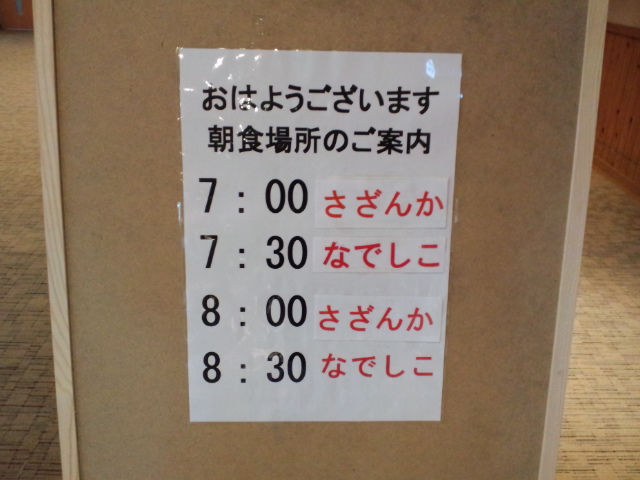 おはようございます
朝食場所のご案内
7：00 さざんか
7：30 なでしこ
8：00 さざんか
8：30 なでしこ